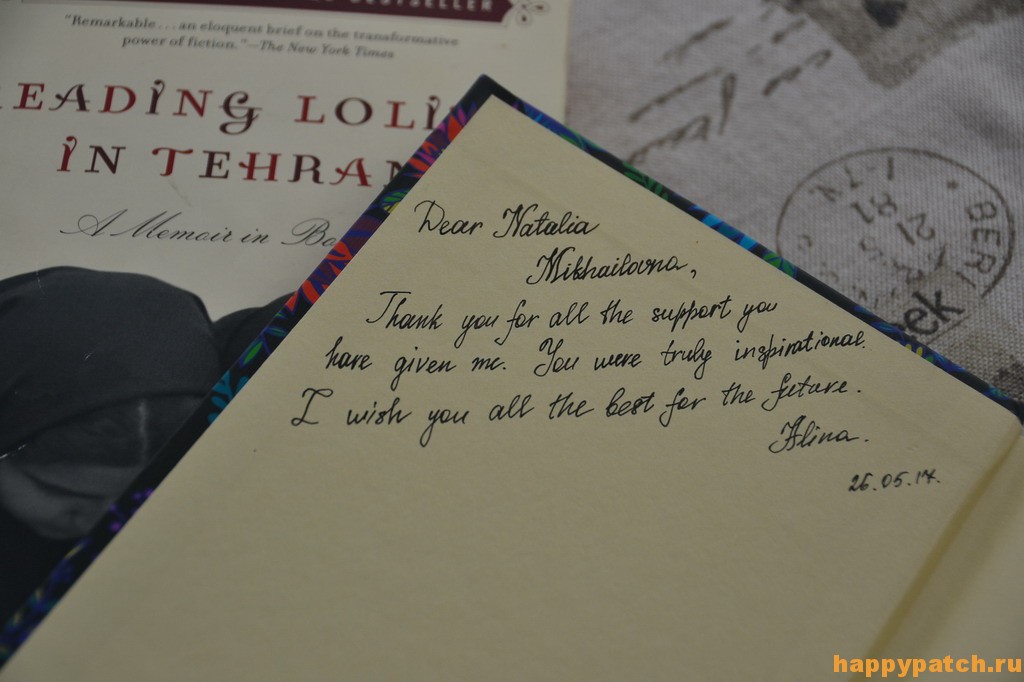 BESTSELLER
"Remarkable...an eloquent brief on the transformative
power of fiction."—The New York Times
EADING LOLI
IN TEHRAN
A Memoir in Bo
Dear Natalia
Mikhailovna,
Thank you for all the support you
have given me. You were truly inspirational.
I wish you all the best for the future.
Alina.
26.05.17.
BERL
21
81
eek
happypatch.ru